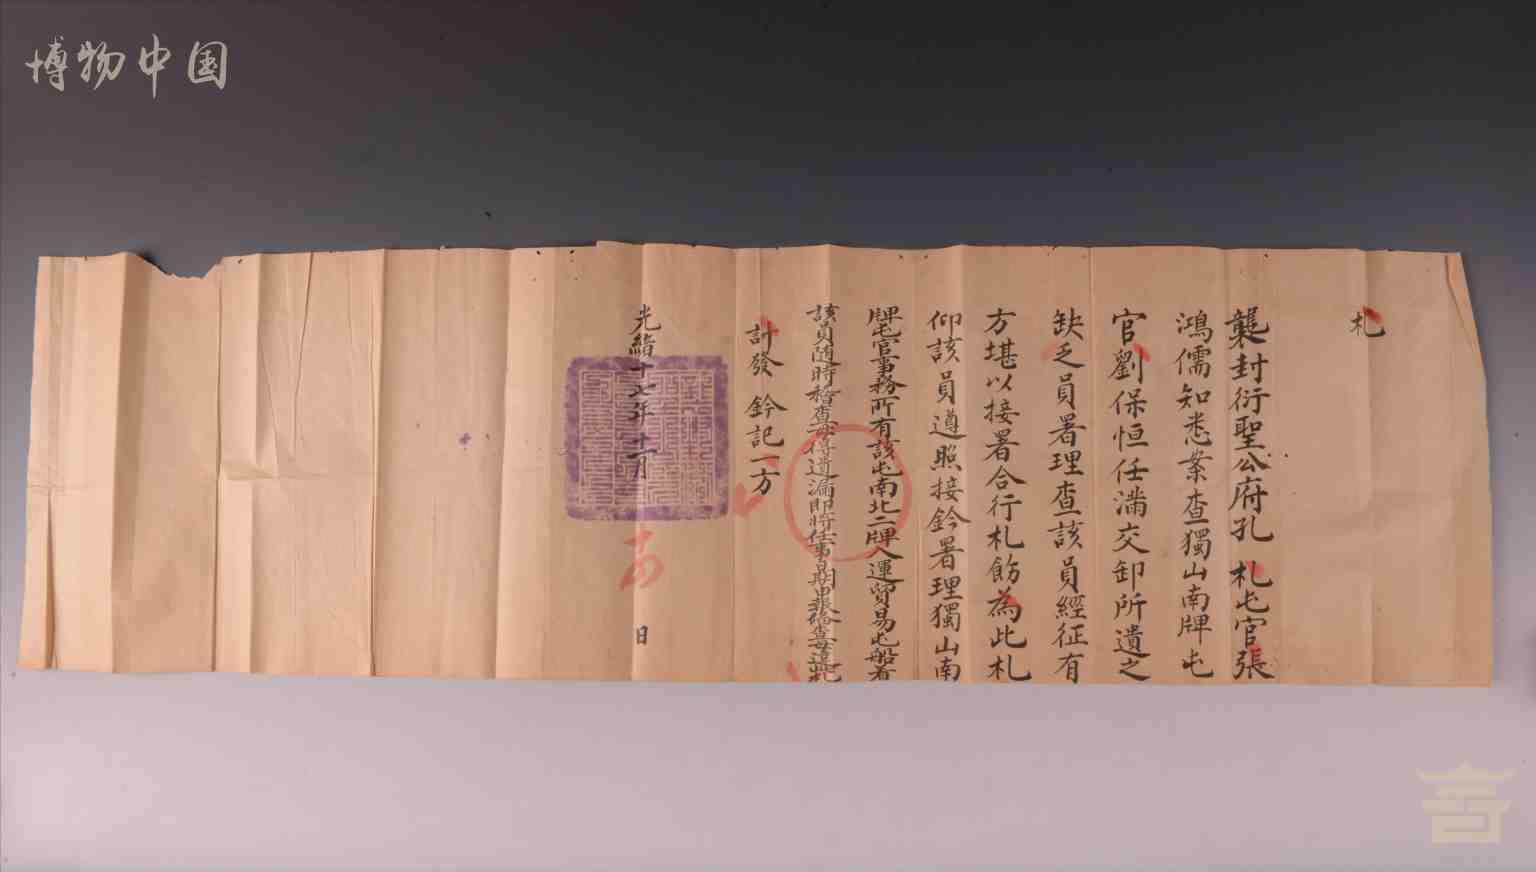 博物中国
札
襲封衍聖公府孔 札屯官張
鴻儒知悉案查獨山南牌屯
官劉保恒任滿交卸所遺之
缺乏員署理查該員經征有
方堪以接署合行札飭為此札
仰該員遵照接鈐署理獨山南
牌屯官事務所有該屯南北二牌入運貿易屯船着
該員随時稽查毋得遺漏即將任事日期申報備查毋違札
計發 鈐記一方
光緒十七年十一月 日